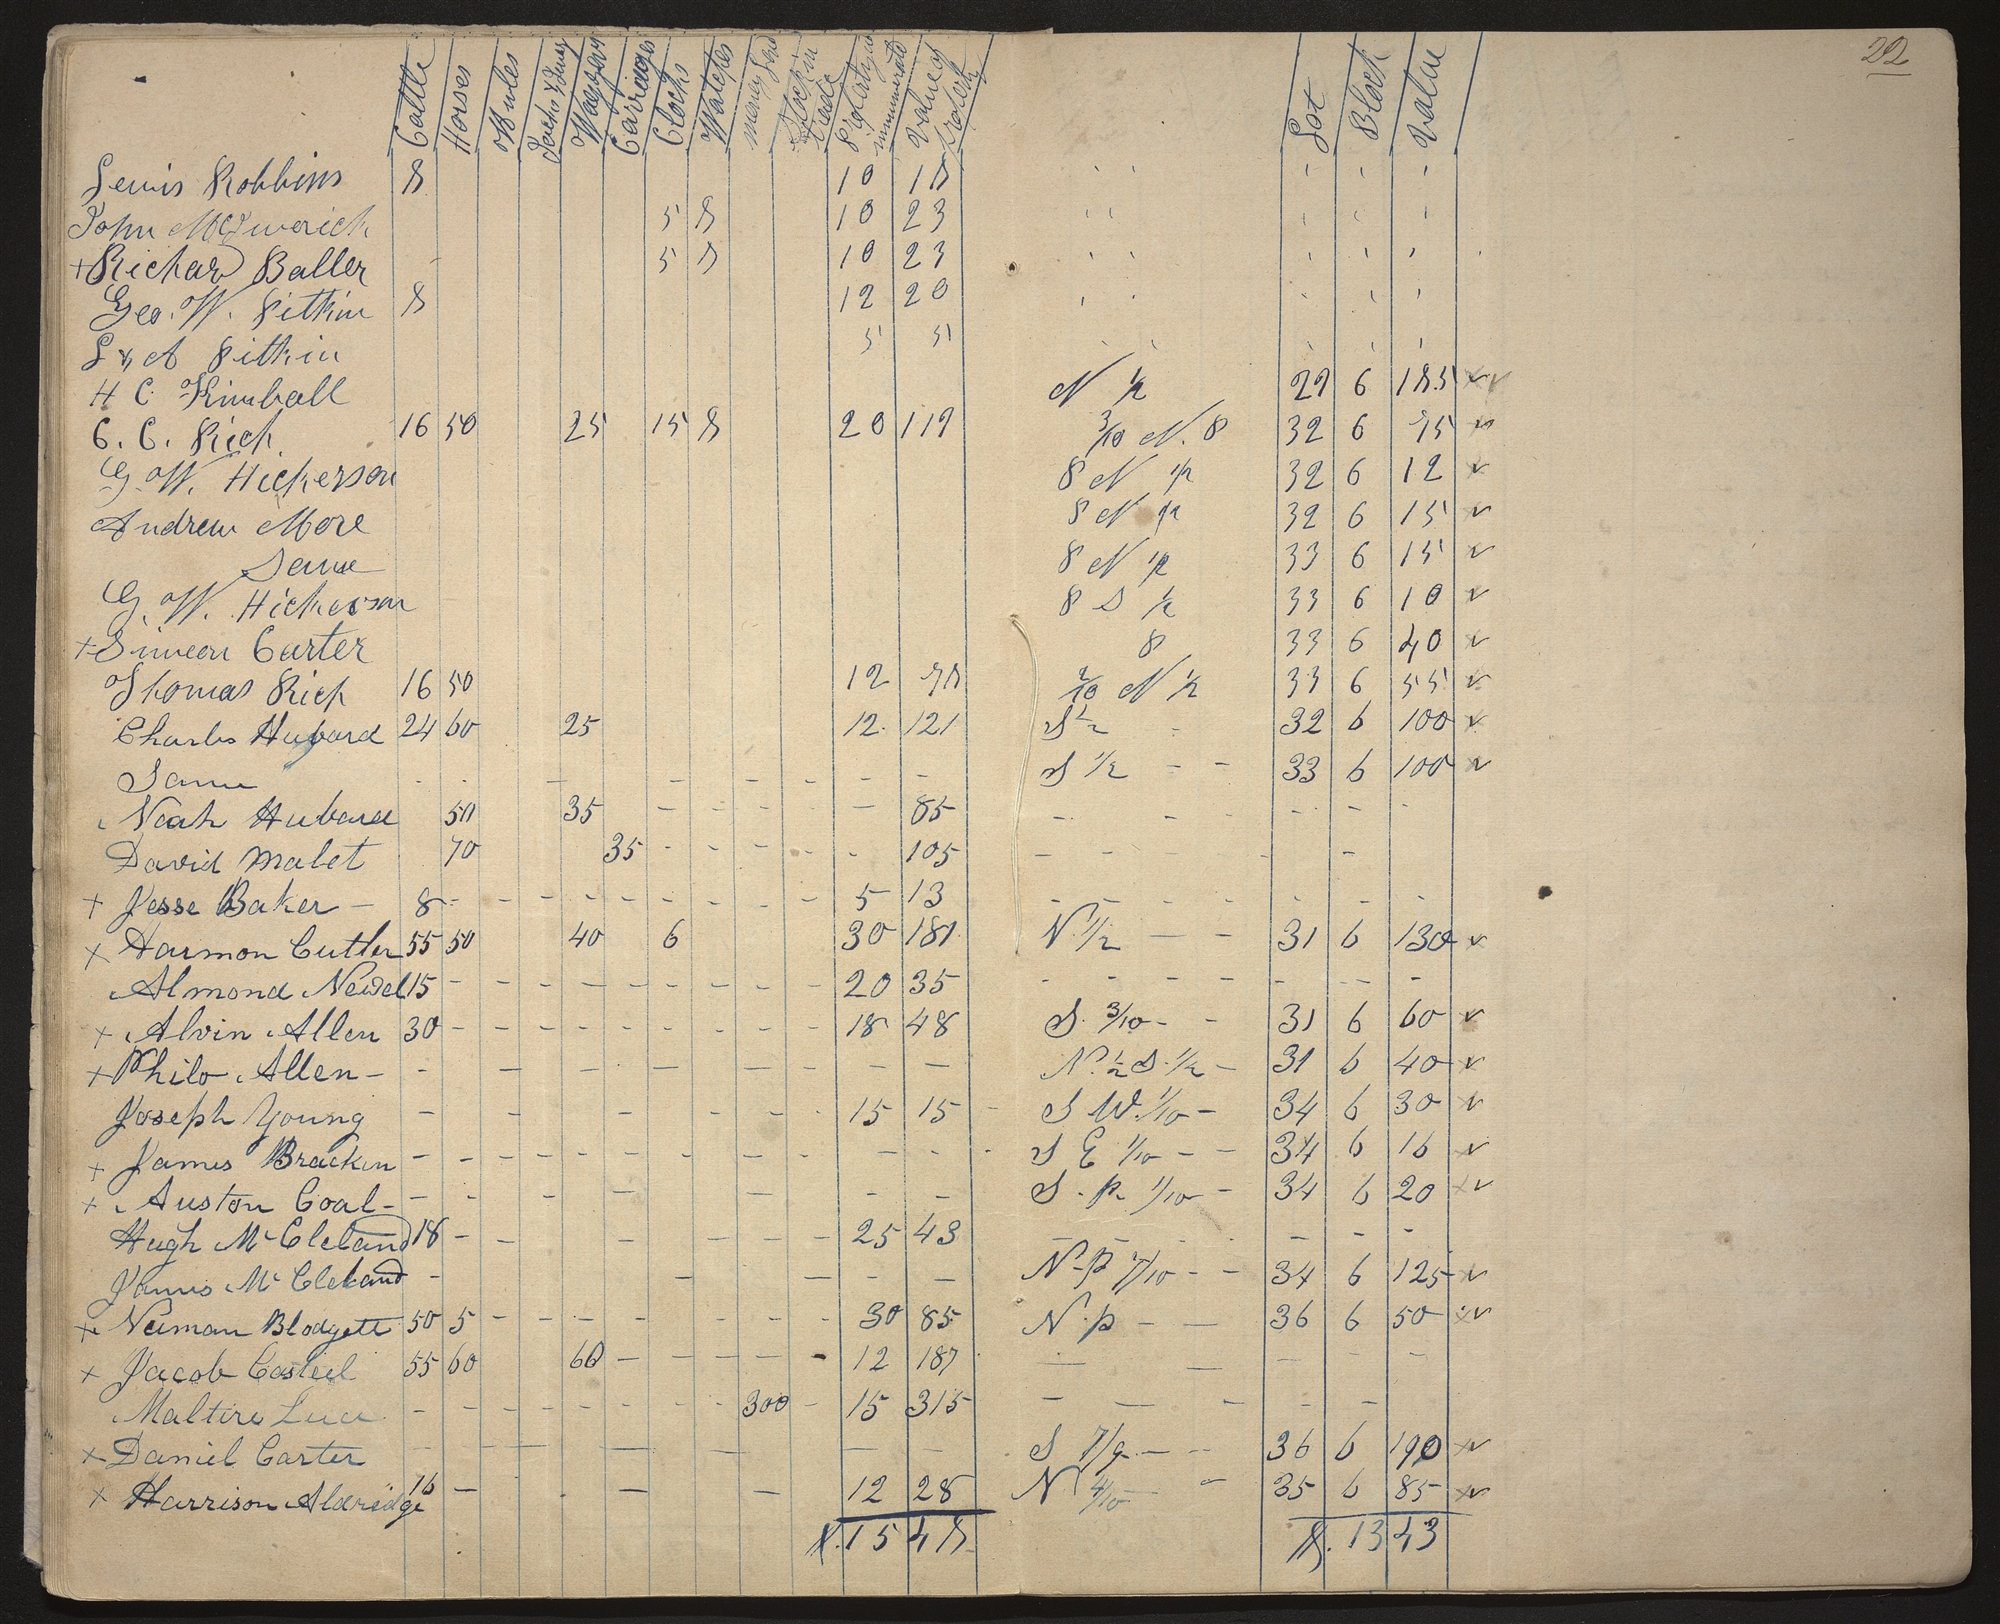 22
Cattle Horses Mules Jacks & Wagons Carriages Clocks Watches money Stock in trade Property not enumerated value of property Lot Block value
Lewis Robbins 8 10 18
John McEwerich 5 8 10 23
+ Richard Baller 5 8 10 23
Geo. W. Pitkin 8 12 20
L & A Pitkin 5 5
H C Kimball N ½ 29 6 185
C. C. Rich 16 50 25 15 8 20 119 3/10 N. 8 32 6 75
G. W. Hickerson 8 N ½ 32 6 12
Andrew More 8 N ½ 32 6 15
Same 8 N ½ 33 6 15
G. W. Hickerson 8 S ½ 33 6 10
+ Simeon Carter 8 33 6 40
Thomas Rich 16 50 12 78 2/10 N ½ 33 6 55
Charles Hubard 24 60 25 12 121 S ½ 32 6 100
Same S ½ 33 6 100
Noah Hubard 50 35 85
David Mabet 70 35 105
+ Jesse Baker 8 5 13
+ Harmon Cutler 55 50 40 6 30 181 N. ½ 31 6 130
Almond Newel 15 20 35
+ Alvin Allen 30 18 48 S. 3/10 31 6 60
+ Philo Allen N. ½ S. ½ 31 6 40
Joseph Young 15 15 S W. 1/10 34 6 30
+ James Bracken S E 1/10 34 6 16
+ Auston Coal S. p. 1/10 34 6 20
Hugh Mc Cleland 18 25 43
James Mc Cleland N. p 7/10 34 6 125
+ Neiman Blodgett 50 5 30 85 N. p 36 6 50
+ Jacob Casteel 55 60 60 12 187
Maltire Luce 300 15 315
+ Daniel Carter S 7/9 36 6 190
+ Harrison Aldredge 16 12 28 N 4/10 35 6 85
$. 1548 $. 1343